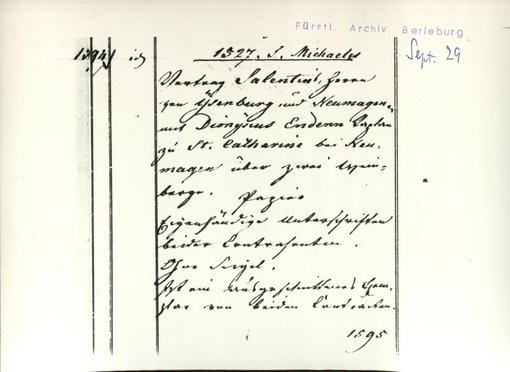 Fürstl. Archiv Berleburg
Sept. 29
1394) id
1527. S. Michaelis
Vertrag Salentins, Herrn
von Ysenburg und Neumagen
mit Dionysius Endenn Caplan
zu St. Catharine bei Neu-
magen über zwei Wein-
berge.
Papier
Eigenhändige Unterschriften
beider Contrahenten.
Ohne Siegel.
Ist ein ausgeschnittenes Exem-
plar von beiden Contracten.
1595